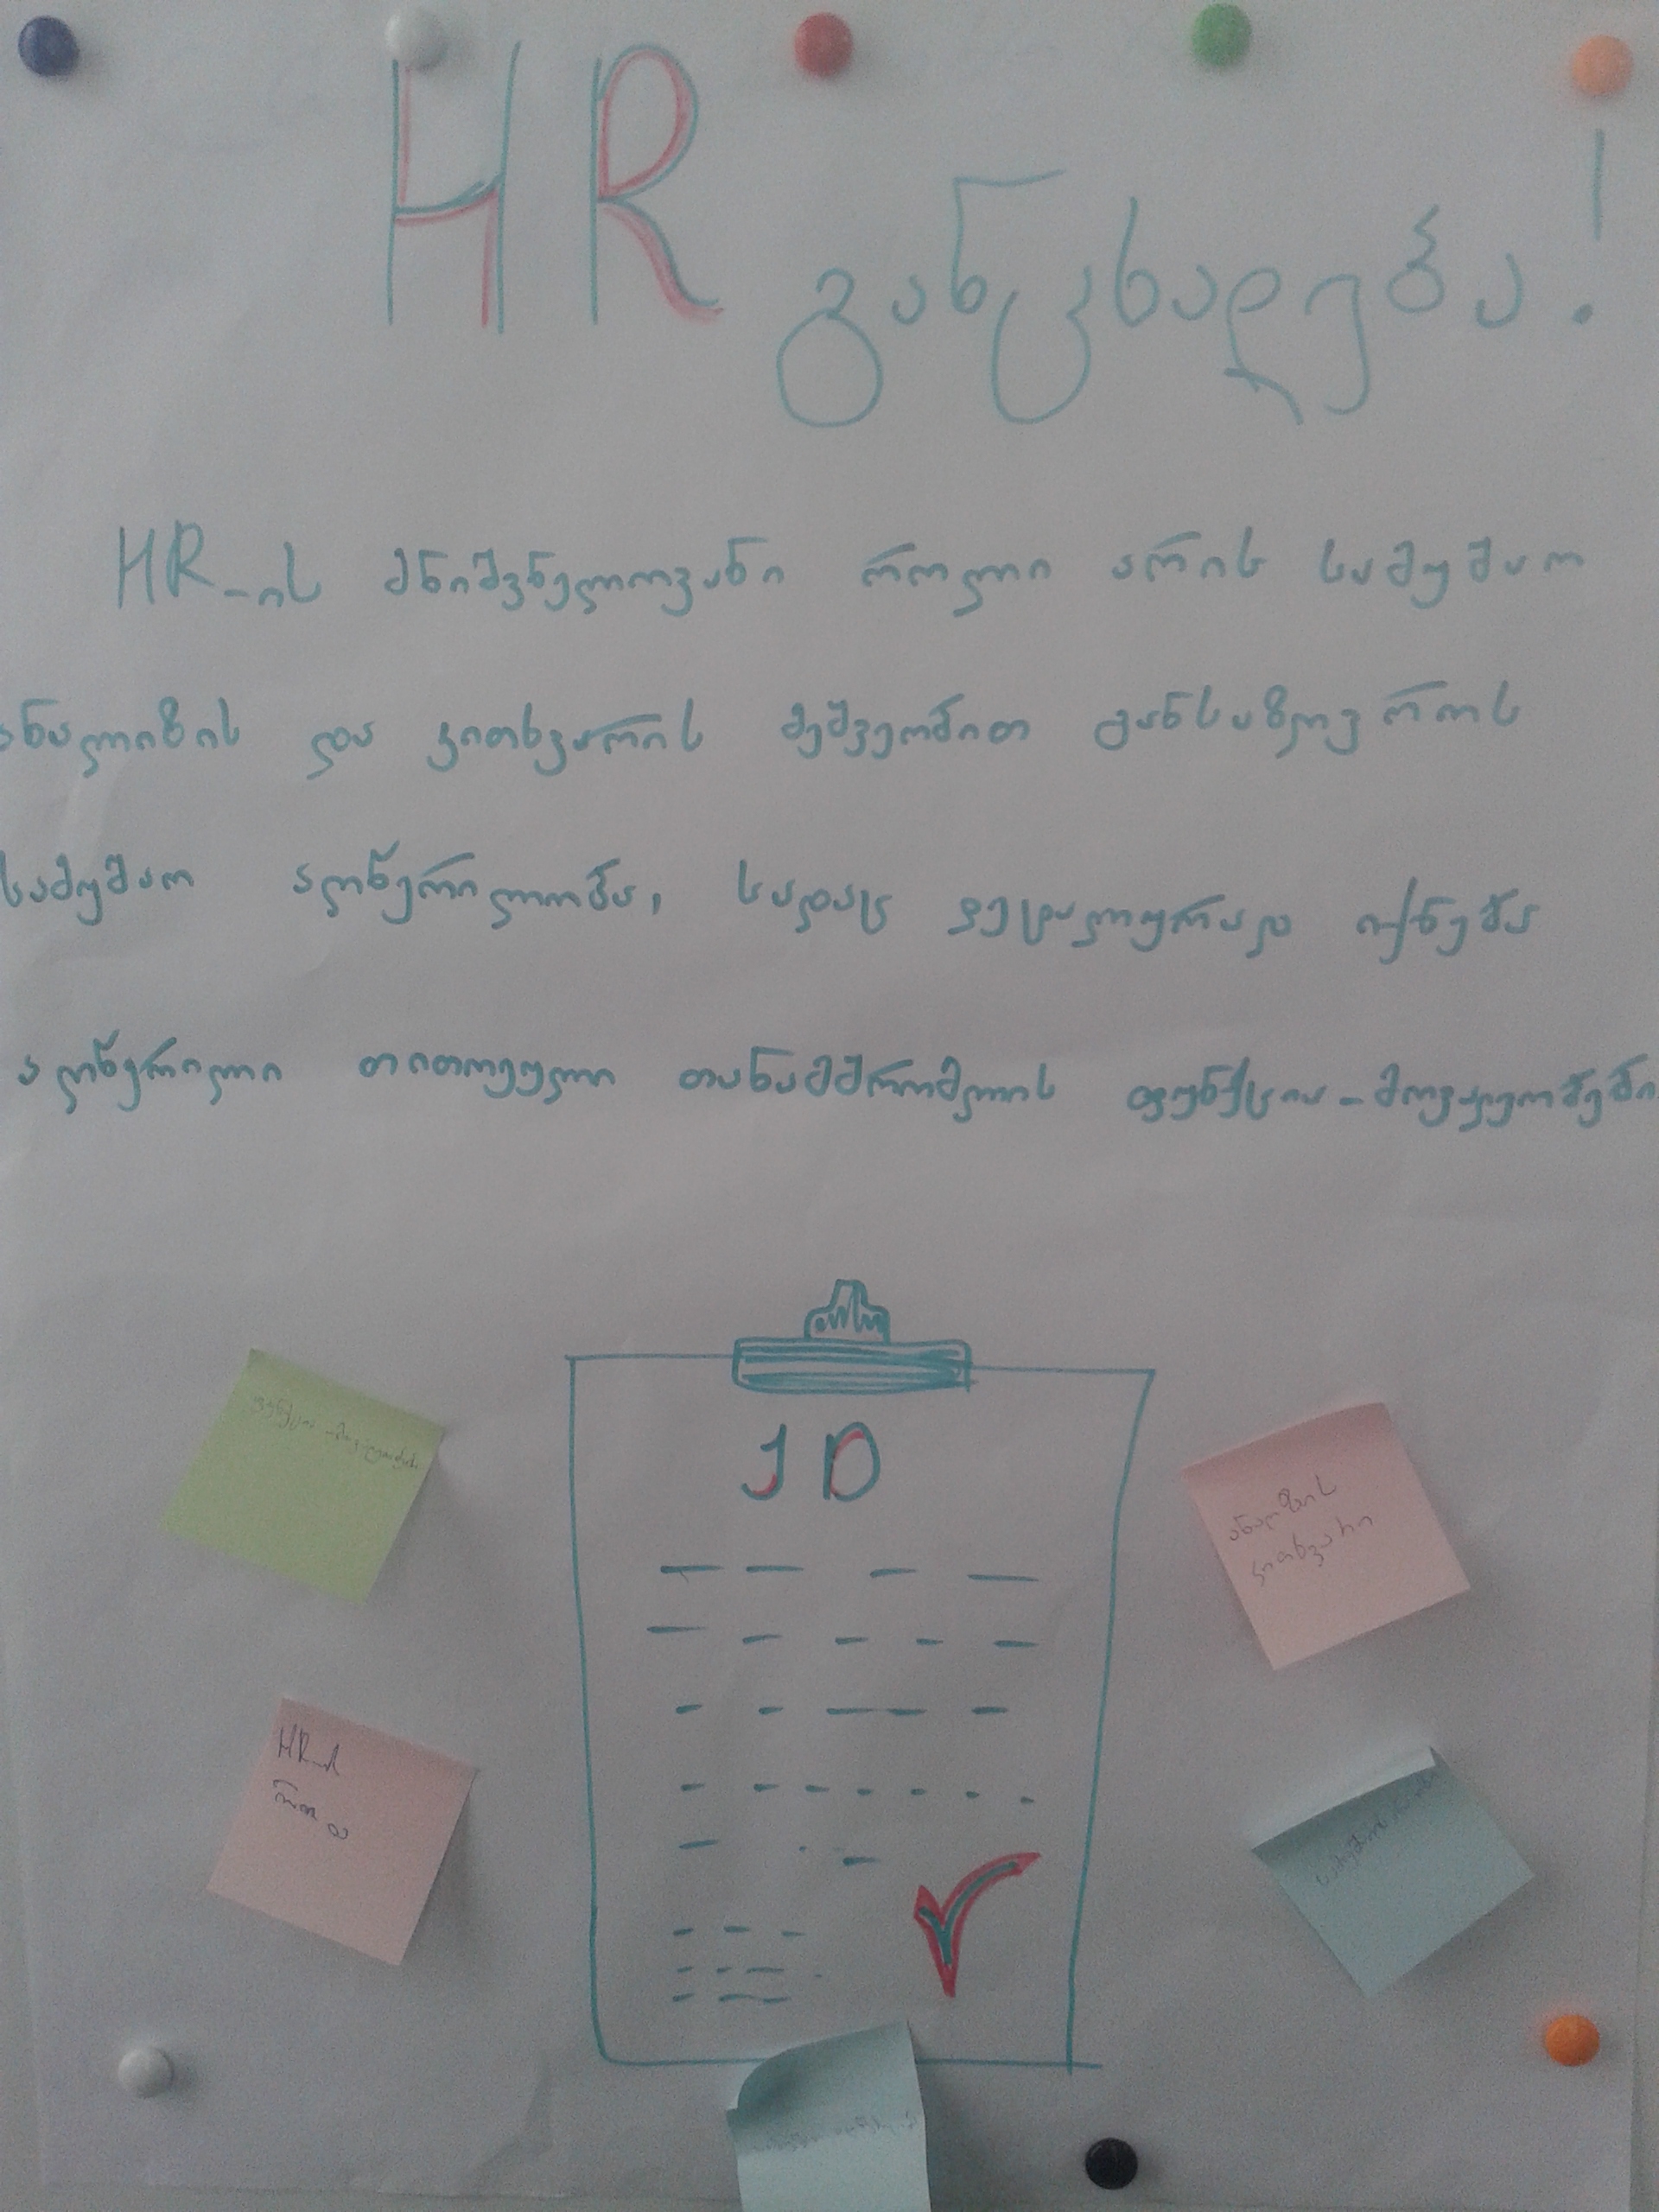 HR განცხადება!
HR-ის მნიშვნელოვანი როლი არის სამუშაო
ანალიზის და კითხვარის მეშვეობით განსაზღვროს
სამუშაო აღწერილობა, სადაც დეტალურად იქნება
აღწერილი თითოეული თანამშრომლის ფუნქცია-მოვალეობები
JD
ფუნქცია-მოვალეობები
ანალიზის
კითხვარი
HR-ის
როლი